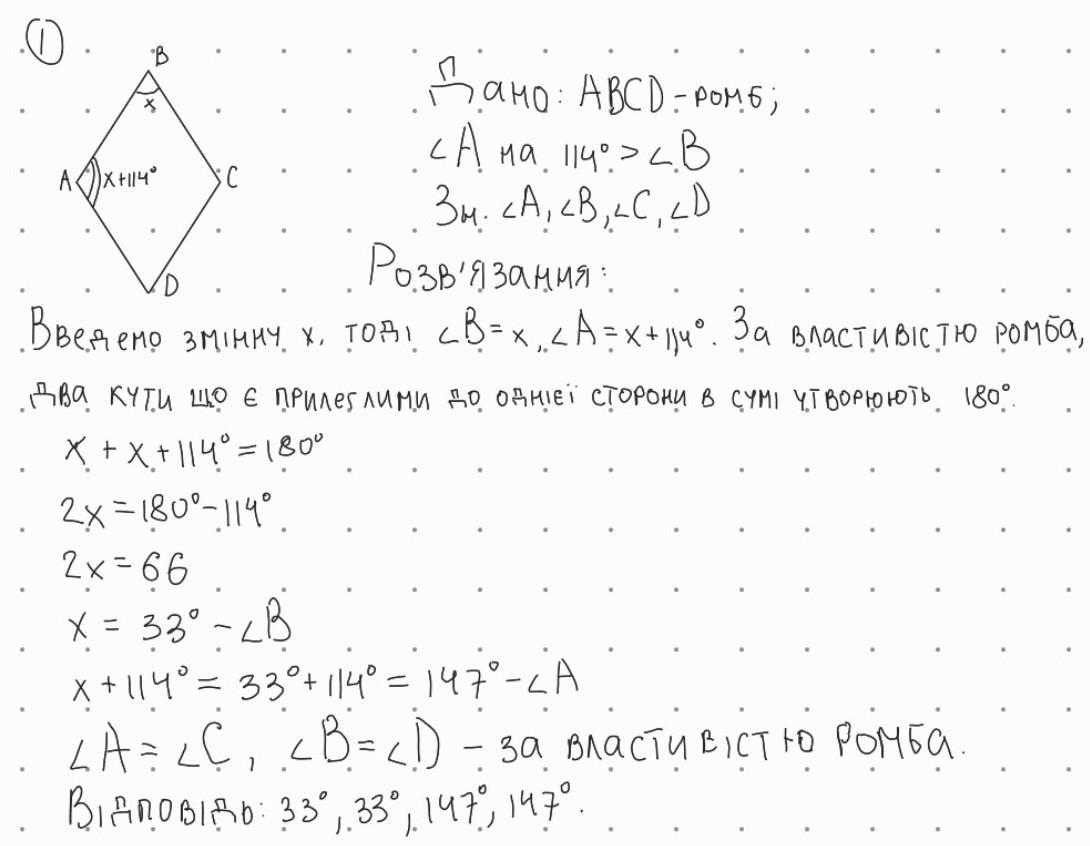 1
B
x
A x+114° C
D
Дано: ABCD - ромб;
∠A на 114° > ∠B
Зн. ∠A, ∠B, ∠C, ∠D
Розв'язання:
Введемо змінну x, тоді ∠B = x, ∠A = x + 114°. За властивістю ромба,
два кути що є прилеглими до однієї сторони в сумі утворюють 180°.
x + x + 114° = 180°
2x = 180° - 114°
2x = 66
x = 33° - ∠B
x + 114° = 33° + 114° = 147° - ∠A
∠A = ∠C, ∠B = ∠D - за властивістю ромба.
Відповідь: 33°, 33°, 147°, 147°.